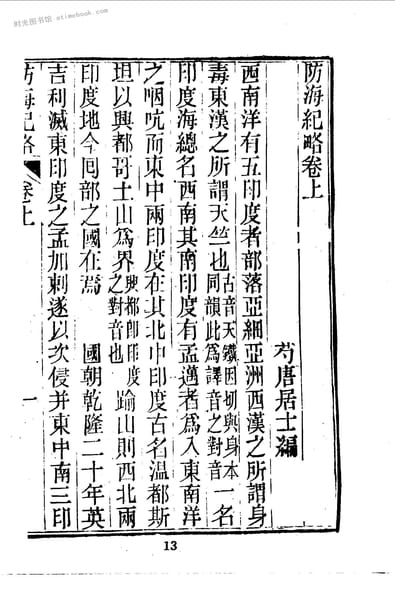 时光图书馆 · atimebook.com
防海紀略卷上
芍唐居士編
西南洋有五印度者部落亞細亞洲西漢之所謂身
毒東漢之所謂天竺也古音天鐵因切與身本同韻此為譯音之對音一名
印度海總名西南其南印度有孟邁者為入東南洋
之咽吭而東中兩印度在其北中印度古名溫都斯
坦以興都哥士山為界興都即印度之對音也踰山則西北兩
印度地今囘部之國在焉　國朝乾隆二十年英
吉利滅東印度之孟加剌遂以次侵并東中南三印
防海紀略
卷上
一
13